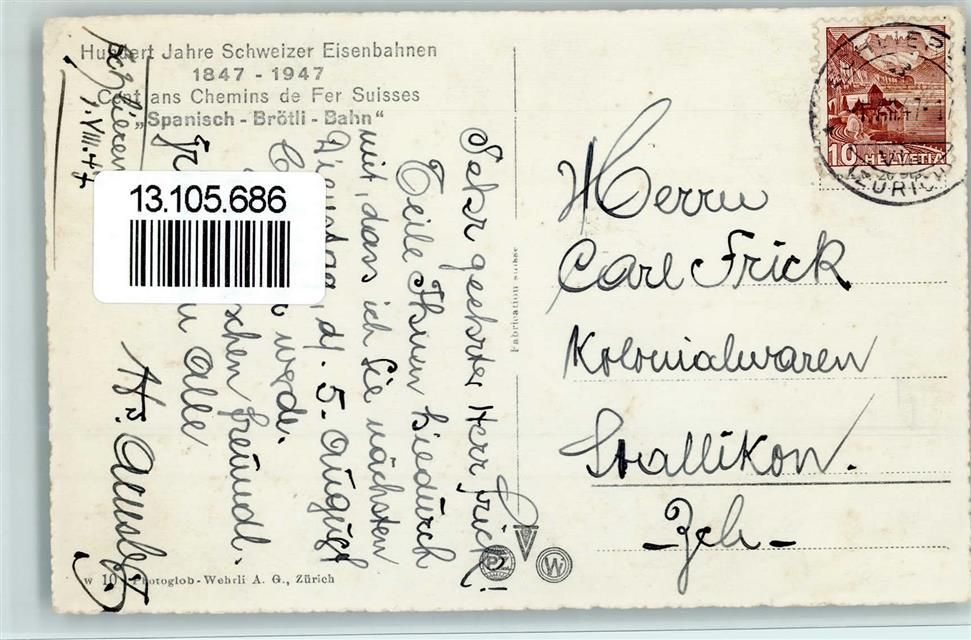 Hundert Jahre Schweizer Eisenbahnen
1847 - 1947
Cent ans Chemins de Fer Suisses
„Spanisch - Brötli - Bahn"
Schlieren
1. VIII. 47
13.105.686
Sehr geehrter Herr Frick!
Teile Ihnen hiedurch
mit, dass ich Sie nächsten
Dienstag, d. 5. August
werde.
freundl.
alle
Fabrication suisse
Herrn
Carl Frick
Kolonialwaren
Stallikon.
- Zch -
10 HELVETIA
ZÜRICH
PZ
W
w 10 Photoglob - Wehrli A. G., Zürich